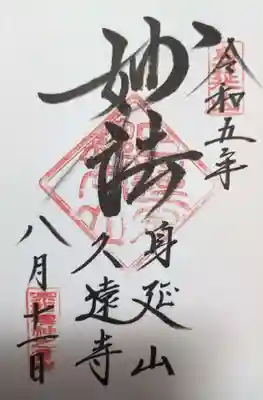 令和五年
妙法
身延山
久遠寺
八月十一日